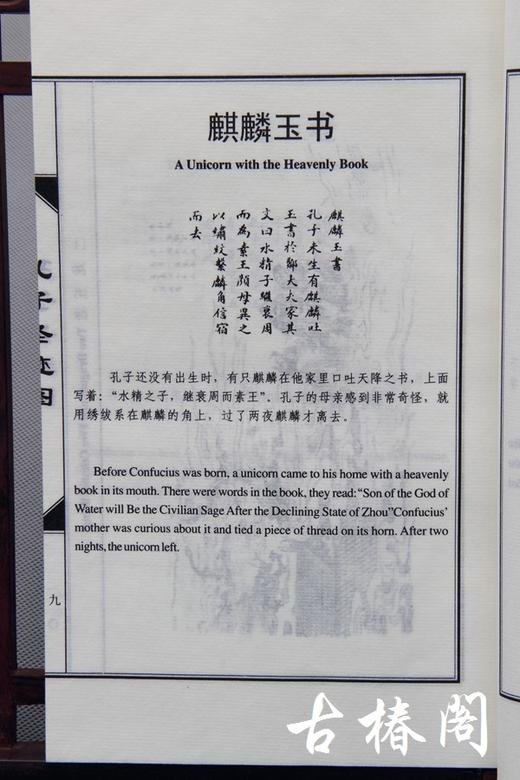 麒麟玉书
A Unicorn with the Heavenly Book
麒麟玉書
孔子未生有麒麟吐
玉書於鄹大夫家其
文曰水精子繼衰周
而為素王顏母異之
以繡紱繫麟角信宿
而去
孔子还没有出生时，有只麒麟在他家里口吐天降之书，上面
写着：“水精之子，继衰周而素王”。孔子的母亲感到非常奇怪，就
用绣绂系在麒麟的角上，过了两夜麒麟才离去。
Before Confucius was born, a unicorn came to his home with a heavenly
book in its mouth. There were words in the book, they read: “Son of the God of
Water will Be the Civilian Sage After the Declining State of Zhou”Confucius’
mother was curious about it and tied a piece of thread on its horn. After two
nights, the unicorn left.
孔子圣迹图
九
古椿阁